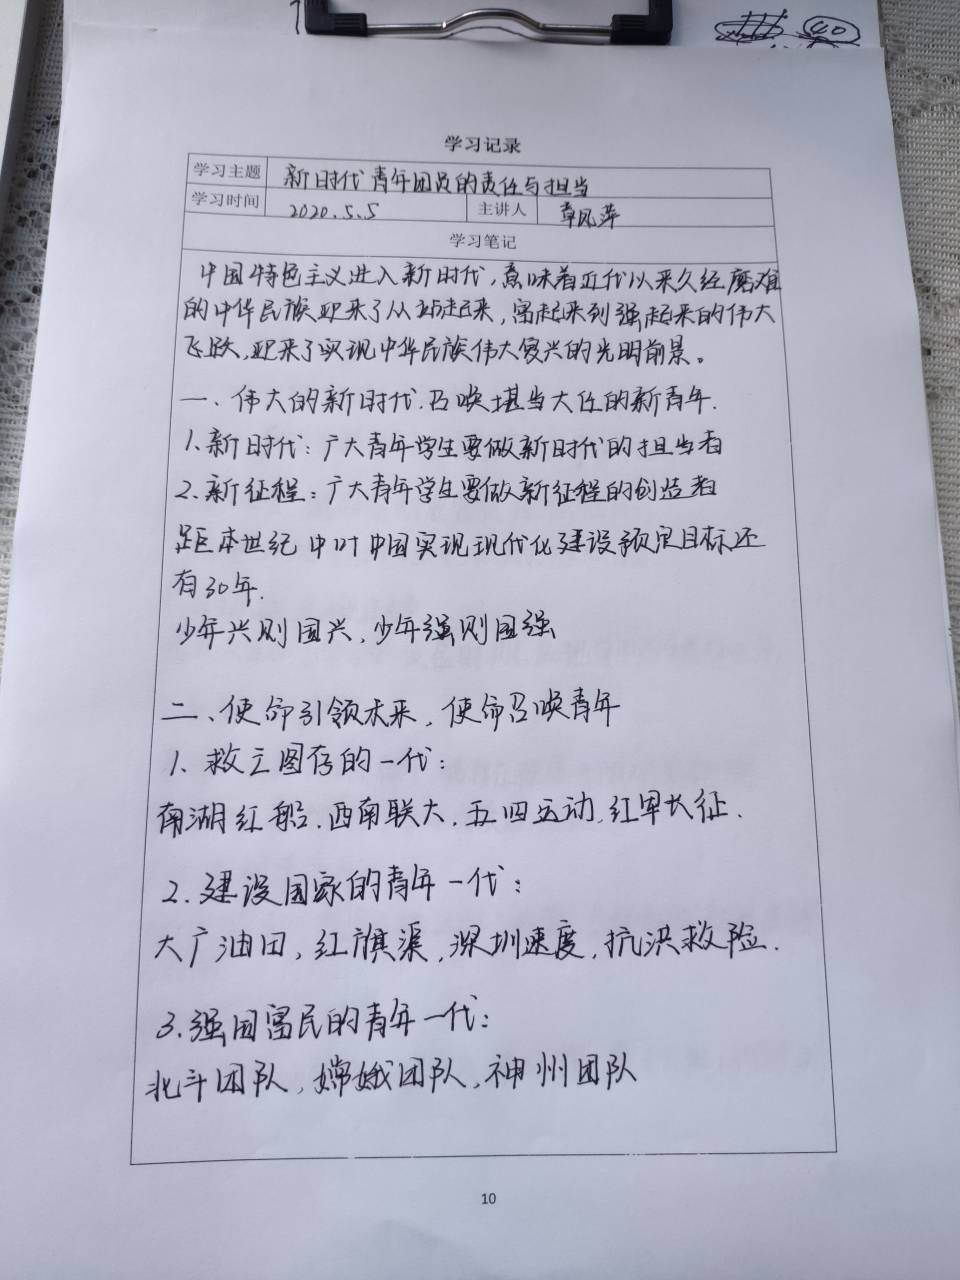 40
学习记录
学习主题 新时代青年团员的责任与担当
学习时间 2020.5.5 主讲人 章凤萍
学习笔记
中国特色主义进入新时代,意味着近代以来久经磨难
的中华民族迎来了从站起来,富起来到强起来的伟大
飞跃,迎来了实现中华民族伟大复兴的光明前景。
一、伟大的新时代.召唤堪当大任的新青年.
1.新时代:广大青年学生要做新时代的担当者
2.新征程:广大青年学生要做新征程的创造者
距本世纪中叶中国实现现代化建设预定目标还
有30年.
少年兴则国兴,少年强则国强
二、使命引领未来,使命召唤青年
1.救亡图存的一代:
南湖红船.西南联大.五四运动,红军长征.
2.建设国家的青年一代:
大广油田,红旗渠,深圳速度,抗洪救险.
3.强国富民的青年一代:
北斗团队,嫦娥团队,神州团队
10